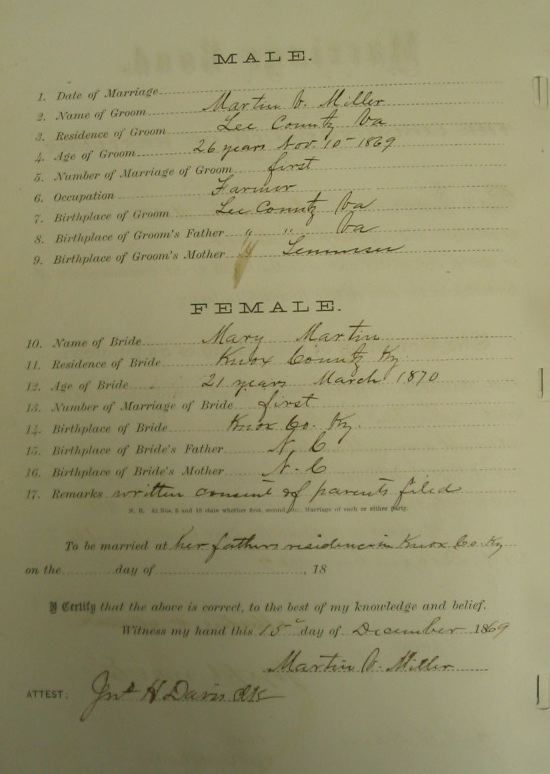 MALE.
1. Date of Marriage
2. Name of Groom Martin V. Miller
3. Residence of Groom Lee County Va
4. Age of Groom 26 years Nov. 10th 1869
5. Number of Marriage of Groom first
6. Occupation Farmer
7. Birthplace of Groom Lee County Va
8. Birthplace of Groom's Father " " Va
9. Birthplace of Groom's Mother " Tennessee
FEMALE.
10. Name of Bride Mary Martin
11. Residence of Bride Knox County Ky
12. Age of Bride 21 years March 1870
13. Number of Marriage of Bride first
14. Birthplace of Bride Knox Co. Ky.
15. Birthplace of Bride's Father N. C
16. Birthplace of Bride's Mother N. C
17. Remarks written consent of parents filed
N. B. At Nos. 5 and 13 state whether first, second, etc., Marriage of each or either party.
To be married at her fathers residence in Knox Co. Ky
on the day of , 18
I Certify that the above is correct, to the best of my knowledge and belief.
Witness my hand this 15" day of December 1869
Martin V. Miller
ATTEST: Jno H Davis clk